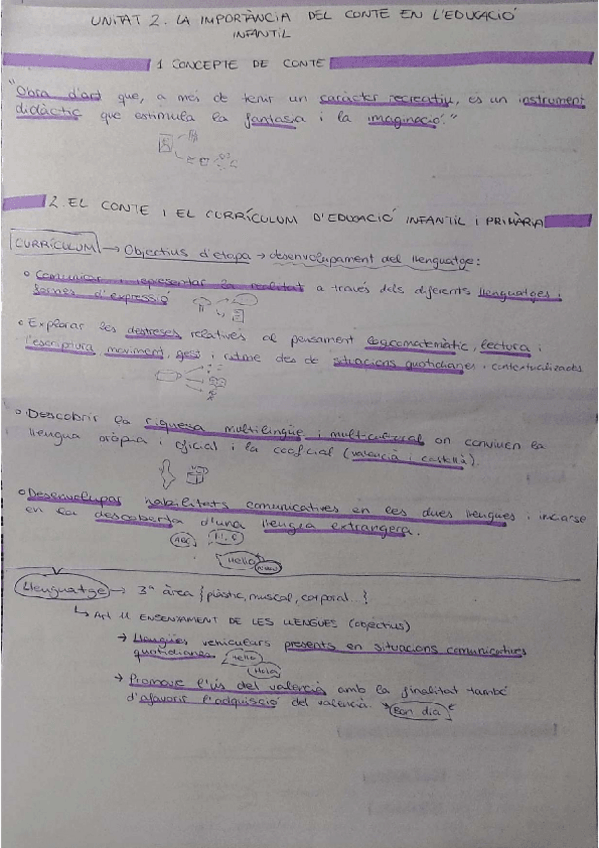 UNITAT 2. LA IMPORTÀNCIA DEL CONTE EN L'EDUCACIÓ
INFANTIL
1 CONCEPTE DE CONTE
"Obra d'art que, a més de tenir un caràcter recreatiu, és un instrument
didàctic que estimula la fantasia i la imaginació."
2. EL CONTE I EL CURRÍCULUM D'EDUCACIÓ INFANTIL I PRIMÀRIA
CURRÍCULUM → Objectius d'etapa → desenvolupament del llenguatge:
o Comunicar i representar la realitat a través dels diferents llenguatges i
formes d'expressió
o Explorar les destreses relatives al pensament logicomatemàtic, lectura i
l'escriptura, moviment, gest i ritme des de situacions quotidianes i contextualitzades
o Descobrir la riquesa multilingüe i multicultural on conviuen la
llengua pròpia i oficial i la cooficial (valencià i castellà).
o Desenvolupar habilitats comunicatives en les dues llengües i iniciar-se
en la descoberta d'una llengua estrangera.
ABC
Hello
Llenguatge → 3ª àrea {plàstic, musical, corporal...}
↳ Art 11 ENSENYAMENT DE LES LLENGÜES (objectius)
→ Llengües vehiculars presents en situacions comunicatives
quotidianes. Hello
Hola
→ Promoure l'ús del valencià amb la finalitat també
d'afavorir l'adquisició del valencià. Bon dia